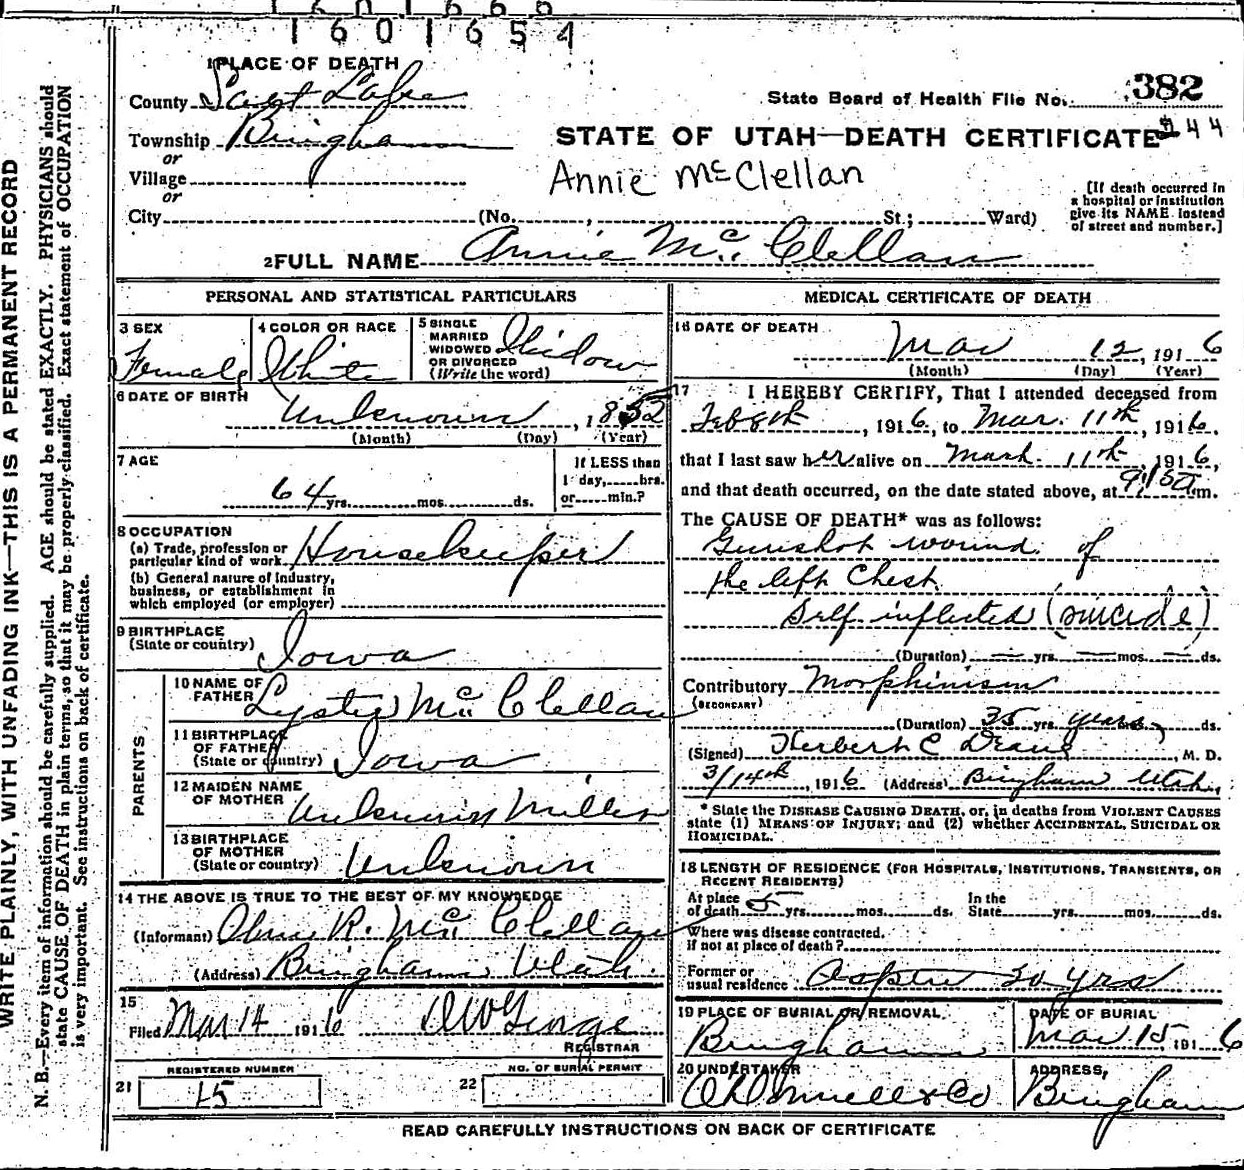 1601654
1 PLACE OF DEATH
County Salt Lake
State Board of Health File No. 382
Township Bingham
or
STATE OF UTAH—DEATH CERTIFICATE 44
Village
or
Annie McClellan
[If death occurred in
a hospital or institution
give its NAME instead
of street and number.]
City (No. , St.; Ward)
2 FULL NAME Annie Mc Clellan
PERSONAL AND STATISTICAL PARTICULARS
3 SEX
Female
4 COLOR OR RACE
White
5 SINGLE
MARRIED
WIDOWED
OR DIVORCED
(Write the word)
Widow
6 DATE OF BIRTH
Unknown, 1852
(Month) (Day) (Year)
7 AGE
64 yrs. mos. ds.
If LESS than
1 day, hrs.
or min.?
8 OCCUPATION
(a) Trade, profession or
particular kind of work Housekeeper
(b) General nature of industry,
business, or establishment in
which employed (or employer)
9 BIRTHPLACE
(State or country)
Iowa
PARENTS
10 NAME OF
FATHER
Mc Clellan
11 BIRTHPLACE
OF FATHER
(State or country) Iowa
12 MAIDEN NAME
OF MOTHER Unknown Miller
13 BIRTHPLACE
OF MOTHER
(State or country) Unknown
14 THE ABOVE IS TRUE TO THE BEST OF MY KNOWLEDGE
(Informant) R. Mc Clellan
(Address) Bingham Utah.
15
Filed Mar 14 1916
REGISTRAR
REGISTERED NUMBER
21 15
NO. OF BURIAL PERMIT
22
MEDICAL CERTIFICATE OF DEATH
16 DATE OF DEATH
Mar 12, 1916
(Month) (Day) (Year)
17 I HEREBY CERTIFY, That I attended deceased from
Feb 8th, 1916, to Mar. 11th, 1916,
that I last saw her alive on March 11th, 1916,
and that death occurred, on the date stated above, at m.
The CAUSE OF DEATH* was as follows:
Gunshot wound of
the left Chest
Self inflicted (suicide)
(Duration) — yrs. — mos. — ds.
Contributory Morphinism
(SECONDARY)
(Duration) 35 yrs. years, ds.
(Signed) Herbert C , M. D.
3/14th, 1916 (Address) Bingham Utah,
* State the DISEASE CAUSING DEATH, or, in deaths from VIOLENT CAUSES
state (1) MEANS OF INJURY; and (2) whether ACCIDENTAL, SUICIDAL OR
HOMICIDAL.
18 LENGTH OF RESIDENCE (FOR HOSPITALS, INSTITUTIONS, TRANSIENTS, OR
RECENT RESIDENTS)
At place
of death 5 yrs. mos. ds.
In the
State yrs. mos. ds.
Where was disease contracted,
if not at place of death?
Former or
usual residence Aspen 20 yrs
19 PLACE OF BURIAL OR REMOVAL
Bingham
DATE OF BURIAL
Mar 15 1916
20 UNDERTAKER
& Co
ADDRESS,
Bingham
READ CAREFULLY INSTRUCTIONS ON BACK OF CERTIFICATE
WRITE PLAINLY, WITH UNFADING INK—THIS IS A PERMANENT RECORD
N. B.—Every item of information should be carefully supplied. AGE should be stated EXACTLY. PHYSICIANS should
state CAUSE OF DEATH in plain terms, so that it may be properly classified. Exact statement of OCCUPATION
is very important. See instructions on back of certificate.